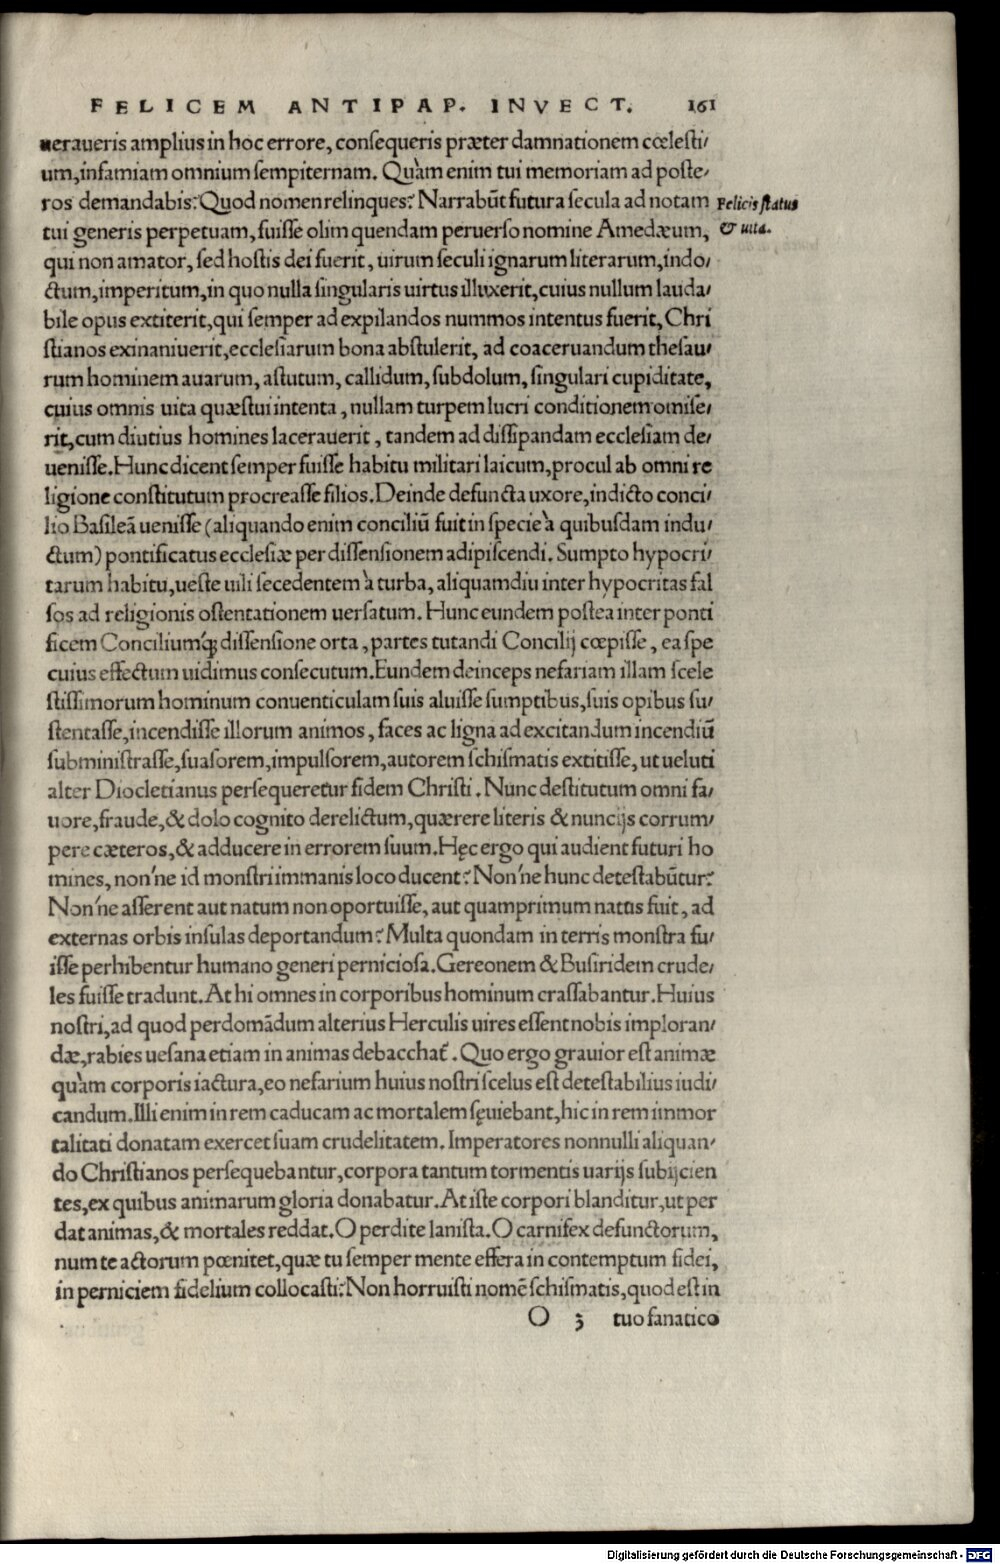 FELICEM ANTIPAP. INVECT. 161
ueraueris amplius in hoc errore, consequeris præter damnationem cœlesti/
um, infamiam omnium sempiternam. Quàm enim tui memoriam ad poste/
ros demandabis? Quod nomen relinques? Narrabūt futura secula ad notam
Felicis status
tui generis perpetuam, fuisse olim quendam peruerso nomine Amedæum,
& uita.
qui non amator, sed hostis dei fuerit, uirum seculi ignarum literarum, indo/
ctum, imperitum, in quo nulla singularis uirtus illuxerit, cuius nullum lauda/
bile opus extiterit, qui semper ad expilandos nummos intentus fuerit, Chri
stianos exinaniuerit, ecclesiarum bona abstulerit, ad coaceruandum thesau/
rum hominem auarum, astutum, callidum, subdolum, singulari cupiditate,
cuius omnis uita quæstui intenta, nullam turpem lucri conditionem omise/
rit, cum diutius homines lacerauerit, tandem ad dissipandam ecclesiam de/
uenisse. Hunc dicent semper fuisse habitu militari laicum, procul ab omni re
ligione constitutum procreasse filios. Deinde defuncta uxore, indicto conci/
lio Basileā uenisse (aliquando enim conciliū fuit in specie à quibusdam indu/
ctum) pontificatus ecclesiæ per dissensionem adipiscendi. Sumpto hypocri/
tarum habitu, ueste uili secedentem à turba, aliquamdiu inter hypocritas fal
sos ad religionis ostentationem uersatum. Hunc eundem postea inter ponti
ficem Conciliumq́; dissensione orta, partes tutandi Concilij cœpisse, ea spe
cuius effectum uidimus consecutum. Eundem deinceps nefariam illam scele
stissimorum hominum conuenticulam suis aluisse sumptibus, suis opibus su/
stentasse, incendisse illorum animos, faces ac ligna ad excitandum incendiū
subministrasse, suasorem, impulsorem, autorem schismatis extitisse, ut ueluti
alter Diocletianus persequeretur fidem Christi. Nunc destitutum omni fa/
uore, fraude, & dolo cognito derelictum, quærere literis & nuncijs corrum/
pere cæteros, & adducere in errorem suum. Hęc ergo qui audient futuri ho
mines, non'ne id monstri immanis loco ducent? Non'ne hunc detestabūtur?
Non'ne asserent aut natum non oportuisse, aut quamprimum natus fuit, ad
externas orbis insulas deportandum? Multa quondam in terris monstra fu/
isse perhibentur humano generi perniciosa. Gereonem & Busiridem crude/
les fuisse tradunt. At hi omnes in corporibus hominum crassabantur. Huius
nostri, ad quod perdomādum alterius Herculis uires essent nobis imploran/
dæ, rabies uesana etiam in animas debacchat̄. Quo ergo grauior est animæ
quàm corporis iactura, eo nefarium huius nostri scelus est detestabilius iudi/
candum. Illi enim in rem caducam ac mortalem sęuiebant, hic in rem immor
talitati donatam exercet suam crudelitatem. Imperatores nonnulli aliquan/
do Christianos persequebantur, corpora tantum tormentis uarijs subijcien
tes, ex quibus animarum gloria donabatur. At iste corpori blanditur, ut per
dat animas, & mortales reddat. O perdite lanista. O carnifex defunctorum,
num te actorum pœnitet, quæ tu semper mente effera in contemptum fidei,
in perniciem fidelium collocasti? Non horruisti nomē schismatis, quod est in
O 3 tuo fanatico
Digitalisierung gefördert durch die Deutsche Forschungsgemeinschaft - DFG